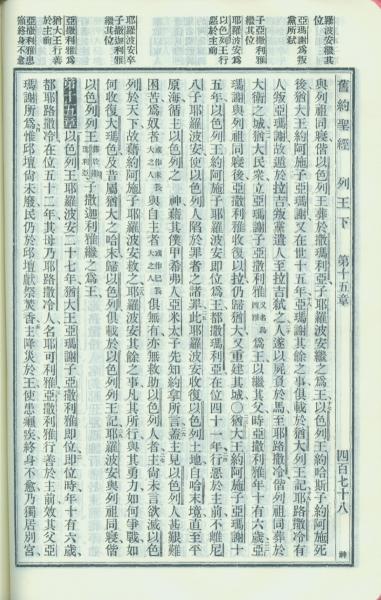 舊約聖經 列王下 第十五章 四百七十八
與列祖同寢偕以色列王葬於撒瑪利亞子耶羅波安繼之爲王以色列王約哈斯子約阿施死
後猶大王約阿施子亞瑪謝又在世十五年亞瑪謝其餘之事俱載於猶大列王記耶路撒冷有
人叛亞瑪謝故遁於拉吉叛黨遣人至拉吉弒之人遂以屍負於馬至耶路撒冷偕列祖同葬於
大衛之城猶大民衆立亞瑪謝子亞撒利雅爲王以繼其父時亞撒利雅年十有六歲亞
瑪謝與列祖同寢後亞撒利雅收復以拉仍歸猶大又重建其城〇猶大王約阿施子亞瑪謝十
五年以色列王約阿施子耶羅波安即位爲王都撒瑪利亞在位四十一年行惡於主前不離尼
八子耶羅波安使以色列人陷於罪者之諸罪此耶羅波安收復以色列土地自哈末境直至平
原海循主以色列之神藉其僕甲希弗人亞米太子先知約拿所言蓋主見以色列人甚艱難
困苦爲奴者與自主者俱無有亦無救助以色列人者主尚未言欲滅以色
列於天下故藉約阿施子耶羅波安救之耶羅波安其餘之事凡其所行與其勇力如何爭戰如
何收復大瑪色及昔屬猶大之哈末歸以色列俱載於以色列列王記耶羅波安與列祖同寢偕
以色列列王子撒迦利雅繼之爲王
第十五章以色列王耶羅波安二十七年猶大王亞瑪謝子亞撒利雅即位即位時年十有六歲
都耶路撒冷在位五十二年其母乃耶路撒冷人名耶可利雅亞撒利雅行善於主前效其父亞
瑪謝所爲惟邱壇尚未廢民仍於邱壇獻祭焚香主降災於王使患癩疾終身不愈乃獨居別宮